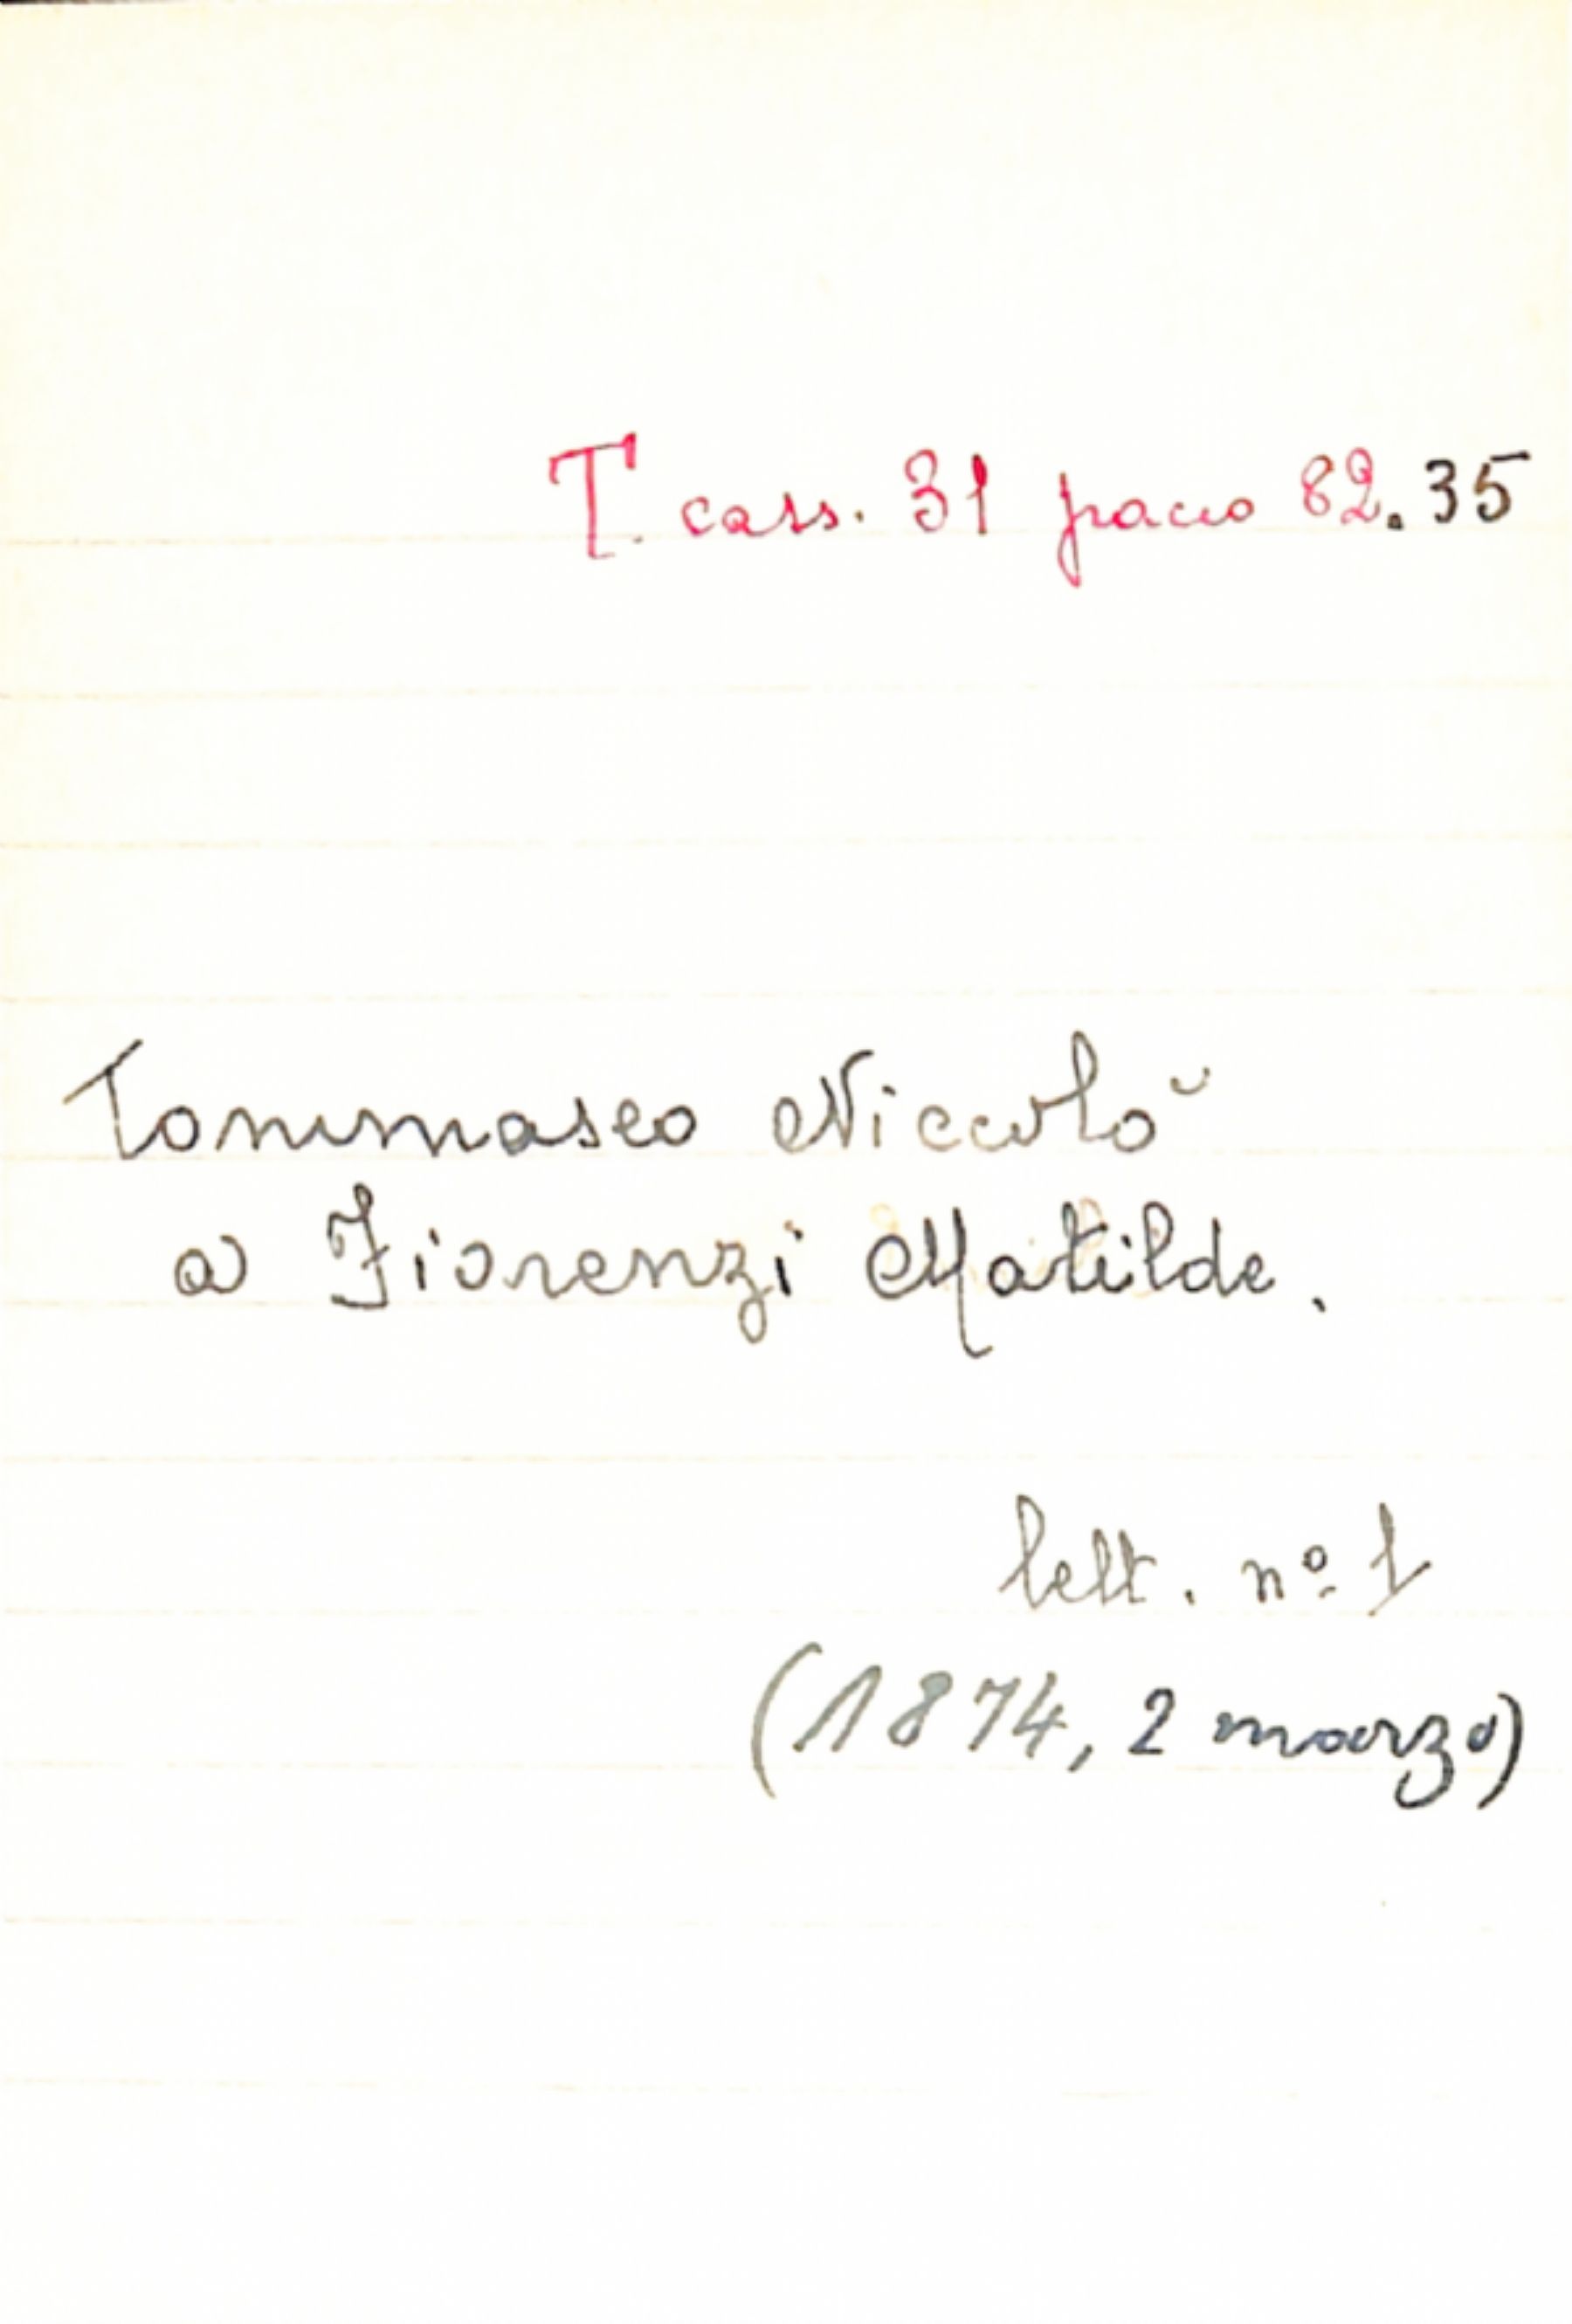 T. cass. 31 pacco 82.35
Tommaseo Niccolò
a Fiorenzi Matilde.
lett. nº 1
(1874, 2 marzo)